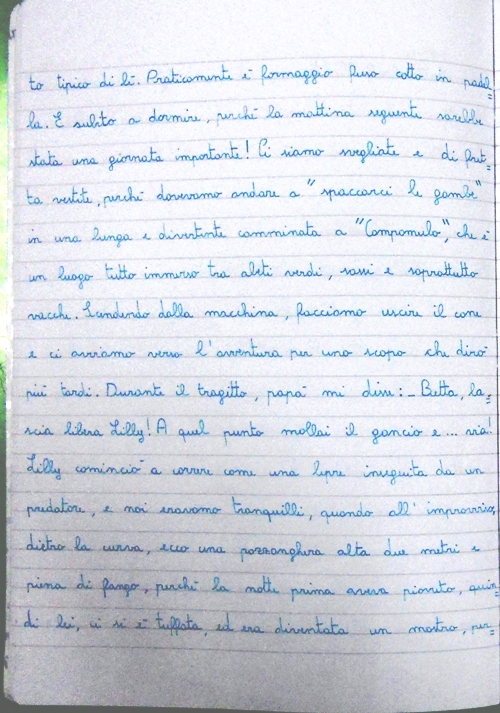 to tipico di lì. Praticamente è formaggio fuso cotto in padel=
la. E subito a dormire, perchè la mattina seguente sarebbe
stata una giornata importante! Ci siamo svegliate e di fret=
ta vestite, perchè dovevamo andare a "spaccarci le gambe"
in una lunga e divertente camminata a "Campomulo", che è
un luogo tutto immerso tra abeti verdi, sassi e soprattutto
vacche. Scendendo dalla macchina, facciamo uscire il cane
e ci avviamo verso l'avventura per uno scopo che dirò
più tardi. Durante il tragitto, papà mi disse:_ Betta, la=
scia libera Lilly! A quel punto mollai il gancio e ... via!
Lilly cominciò a correre come una lepre inseguita da un
predatore, e noi eravamo tranquilli, quando all'improvviso,
dietro la curva, ecco una pozzanghera alta due metri e
piena di fango, perchè la notte prima aveva piovuto, quin=
di lei, ci si è tuffata, ed era diventata un mostro, per=